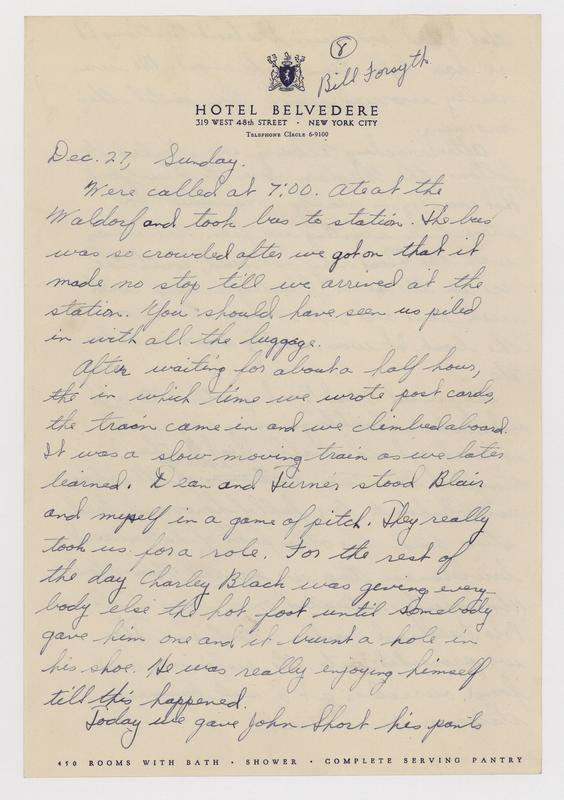 8
Bill Forsyth
HOTEL BELVEDERE
319 WEST 48th STREET · NEW YORK CITY
TELEPHONE CIRCLE 6-9100
Dec. 27, Sunday.
Were called at 7:00. Ate at the
Waldorf and took bus to station. The bus
was so crowded after we got on that it
made no stop till we arrived at the
station. You should have seen us piled
in with all the luggage.
After waiting for about a half hour,
the in which time we wrote post cards,
the train came in and we climbed aboard.
It was a slow moving train as we later
learned. Dean and Turner stood Blair
and myself in a game of pitch. They really
took us for a role. For the rest of
the day Charley Black was giving every-
body else the hot foot until somebody
gave him one and it burnt a hole in
his shoe. He was really enjoying himself
till this happened.
Today we gave John Short his pants
450 ROOMS WITH BATH · SHOWER · COMPLETE SERVING PANTRY